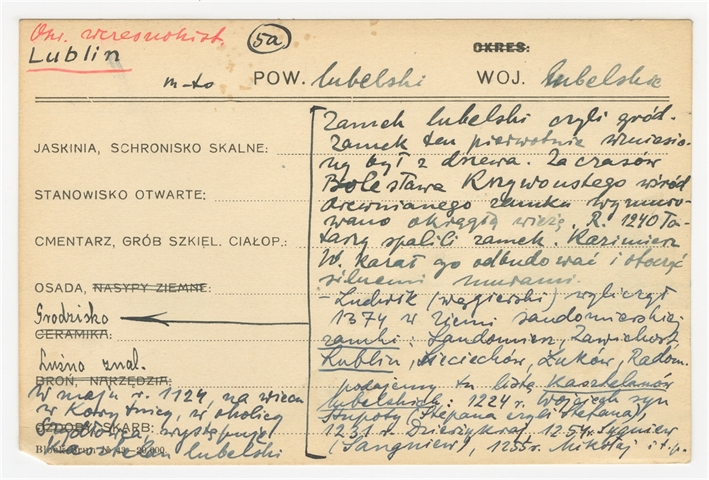 Okr. wczesnohist.
Lublin
5a
OKRES:
m-to POW. lubelski WOJ. lubelskie
JASKINIA, SCHRONISKO SKALNE:
STANOWISKO OTWARTE:
CMENTARZ, GRÓB SZKIEL. CIAŁOP.:
OSADA, NASYPY ZIEMNE:
Grodzisko
CERAMIKA:
Luźno znal.
BROŃ, NARZĘDZIA:
W maju r. 1124, na wiecu
w okolicy
OZDOBY, SKARB:
występuje
Kasztelan lubelski
Zamek lubelski czyli gród.
Zamek ten pierwotnie wzniesio-
ny był z drzewa. Za czasów
Bolesława Krzywoustego wśród
drewnianego zamku wymuro-
wano okrągłą wieżę. R. 1240 Ta-
tarzy spalili zamek. Kazimierz
W. kazał go odbudować i otoczyć
silnemi murami.
– Ludwik (węgierski) wyliczył
1374 w Ziemi sandomierskiej
zamki: Sandomierz, Zawichost,
Lublin, Sieciechów, Żuków, Radom.
podajemy tu listę Kasztelanów
lubelskich: 1224 r. Wojciech syn
Stupoty (Stepana czyli Stefana),
1231 r. Dzierżykraj, 1254 Sygniew
(Sangniew), 1255 r. Mikołaj i t. p.